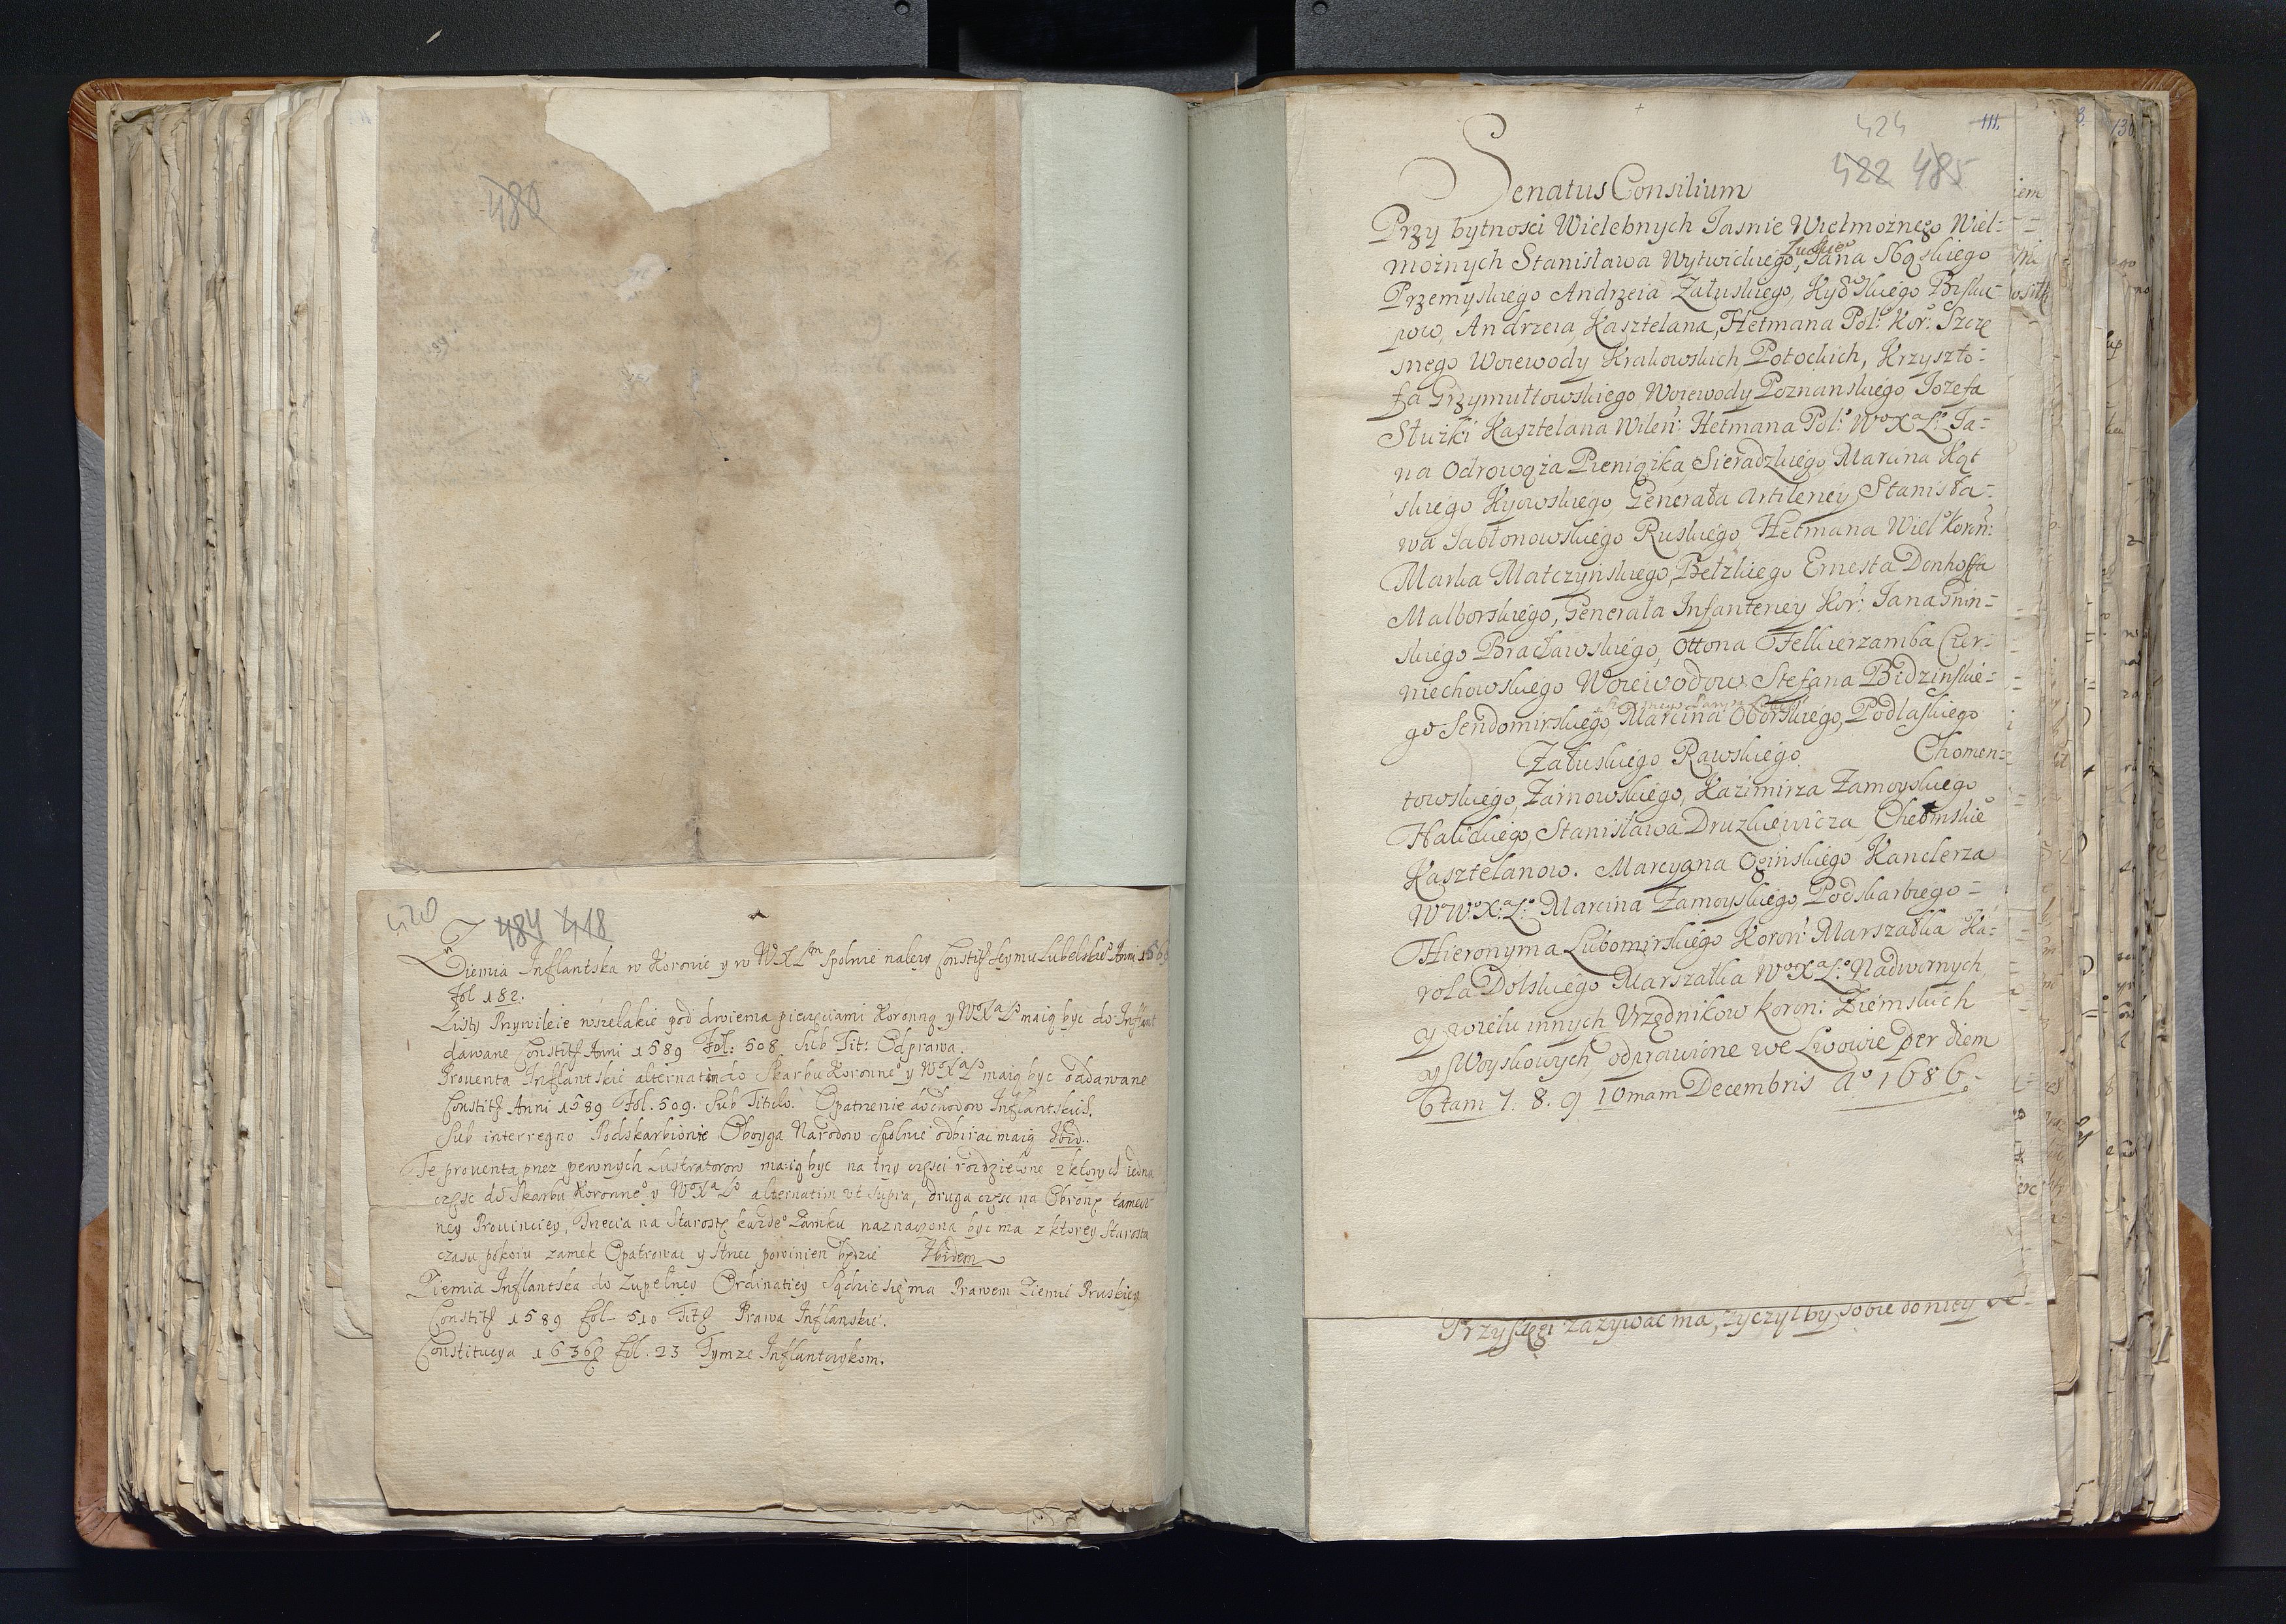 480
420 484 418
Ziemia Inflantska w Koronie y w WXLm spolnie należy Constit Seymu Lubelskie Anni 1569
fol 182.
Listy Przywileie wszelakie pod dwiema pieczęciami Koronną y WoXaLo maią byc do Inflant
dawane Constit Anni 1589 Fol: 508 Sub Tit: Odprawa.
Prouenta Inflantskie alternatim do Skarbu Koronneo y WoXaLo maią byc oddawane
Constit Anni 1589 Fol. 509. Sub Titulo. Opatrzenie dochodow Inflantskich.
Sub interregno Podskarbiowie Oboyga Narodow Spolnie odbirac maią Ibid.
Te prouenta przez pewnych Lustratorow maią byc na trzy częsci rozdzielone z ktorych iedna
częsc do Skarbu Koronneo y WoXaLo alternatim ut supra, druga częsc na Obronę tamecz
ney Prouinciey, Trzecia na Starostę kazdeo Zamku naznaczona byc ma z ktorey Starosta
czasu pokoiu zamek Opatrowac y strzec powinien będzie Ibidem
Ziemia Inflantska do Zupełney Ordinatiey Sądzic się ma Prawem Ziemi Pruskiey
Constit 1589 fol 510 Tit Prawa Inflanskie.
Constitucya fol. 23 Tymze Inflantczykom.
424 111.
422 485
Senatus Consilium
Przy bytnosci Wielebnych Iasnie Wielmożnego Wiel=
możnych Stanisława Wytwickiego, Iana Sbąskiego
Przemyskiego Andrzeia Załuskiego, Kyowskiego Bisku=
pow, Andrzeia Kasztelana, Hetmana Pol: Kor: Szczę
snego Woiewody Krakowskich Potockich, Krzyszto=
fa Grzymułtowskiego Woiewody Poznanskiego Iozefa
Słuzki Kasztelana Wileń: Hetmana Pol: WoXaLo Ia=
na Odrowąża Pieniążka Sieradzkiego Marcina Kąt
skiego Kyiowskiego, Generała Artileriey Stanisła=
wa Iabłonowskiego Ruskiego Hetmana Wiel Koroń:
Marka Matczyńskiego, Bełzkiego Ernesta Donhoffa
Malborskiego, Generała Infanteriey Kor: Iana Gnin=
skiego Bracławskiego, Ottona Felkierzamba Czer=
niechowskiego Woiewodow. Stefana Bidzinskie=
go Sendomirskiego Marcina Oborskiego, Podlaskiego
Załuskiego Rawskiego Chomen=
towskiego, Zarnowskiego, Kazimirza Zamoyskiego
Halickiego, Stanisława Druzkiewicza, Chełmskieo
Kasztelanow. Marcyana Ogińskiego Kanclerza
WoWoX:aL:o Marcina Zamoyskiego Podskarbiego=
Hieronyma Lubomirskiego Koroń: Marszałka Ka=
rola Dolskiego Marszałka WoXaL:o Nadwornych,
y wielu innych Urzędnikow koron: Ziemskich
y Woyskowych, odprawione we Lwowie per diem
6tam 7. 8. 9 10mam Decembris Ao 1686.
Przysięgi zazywac ma, zyczył by sobie do niey